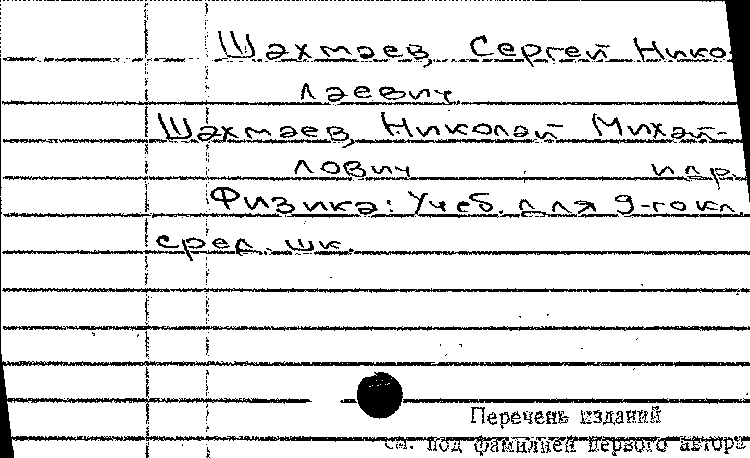 Шахмаев, Сергей Нико
лаевич.
Шахмаев, Николай Михай-
лович и др.
Физика: Учеб. для 9-го кл.
сред. шк.
Перечень изданий
см. под фамилией первого автора